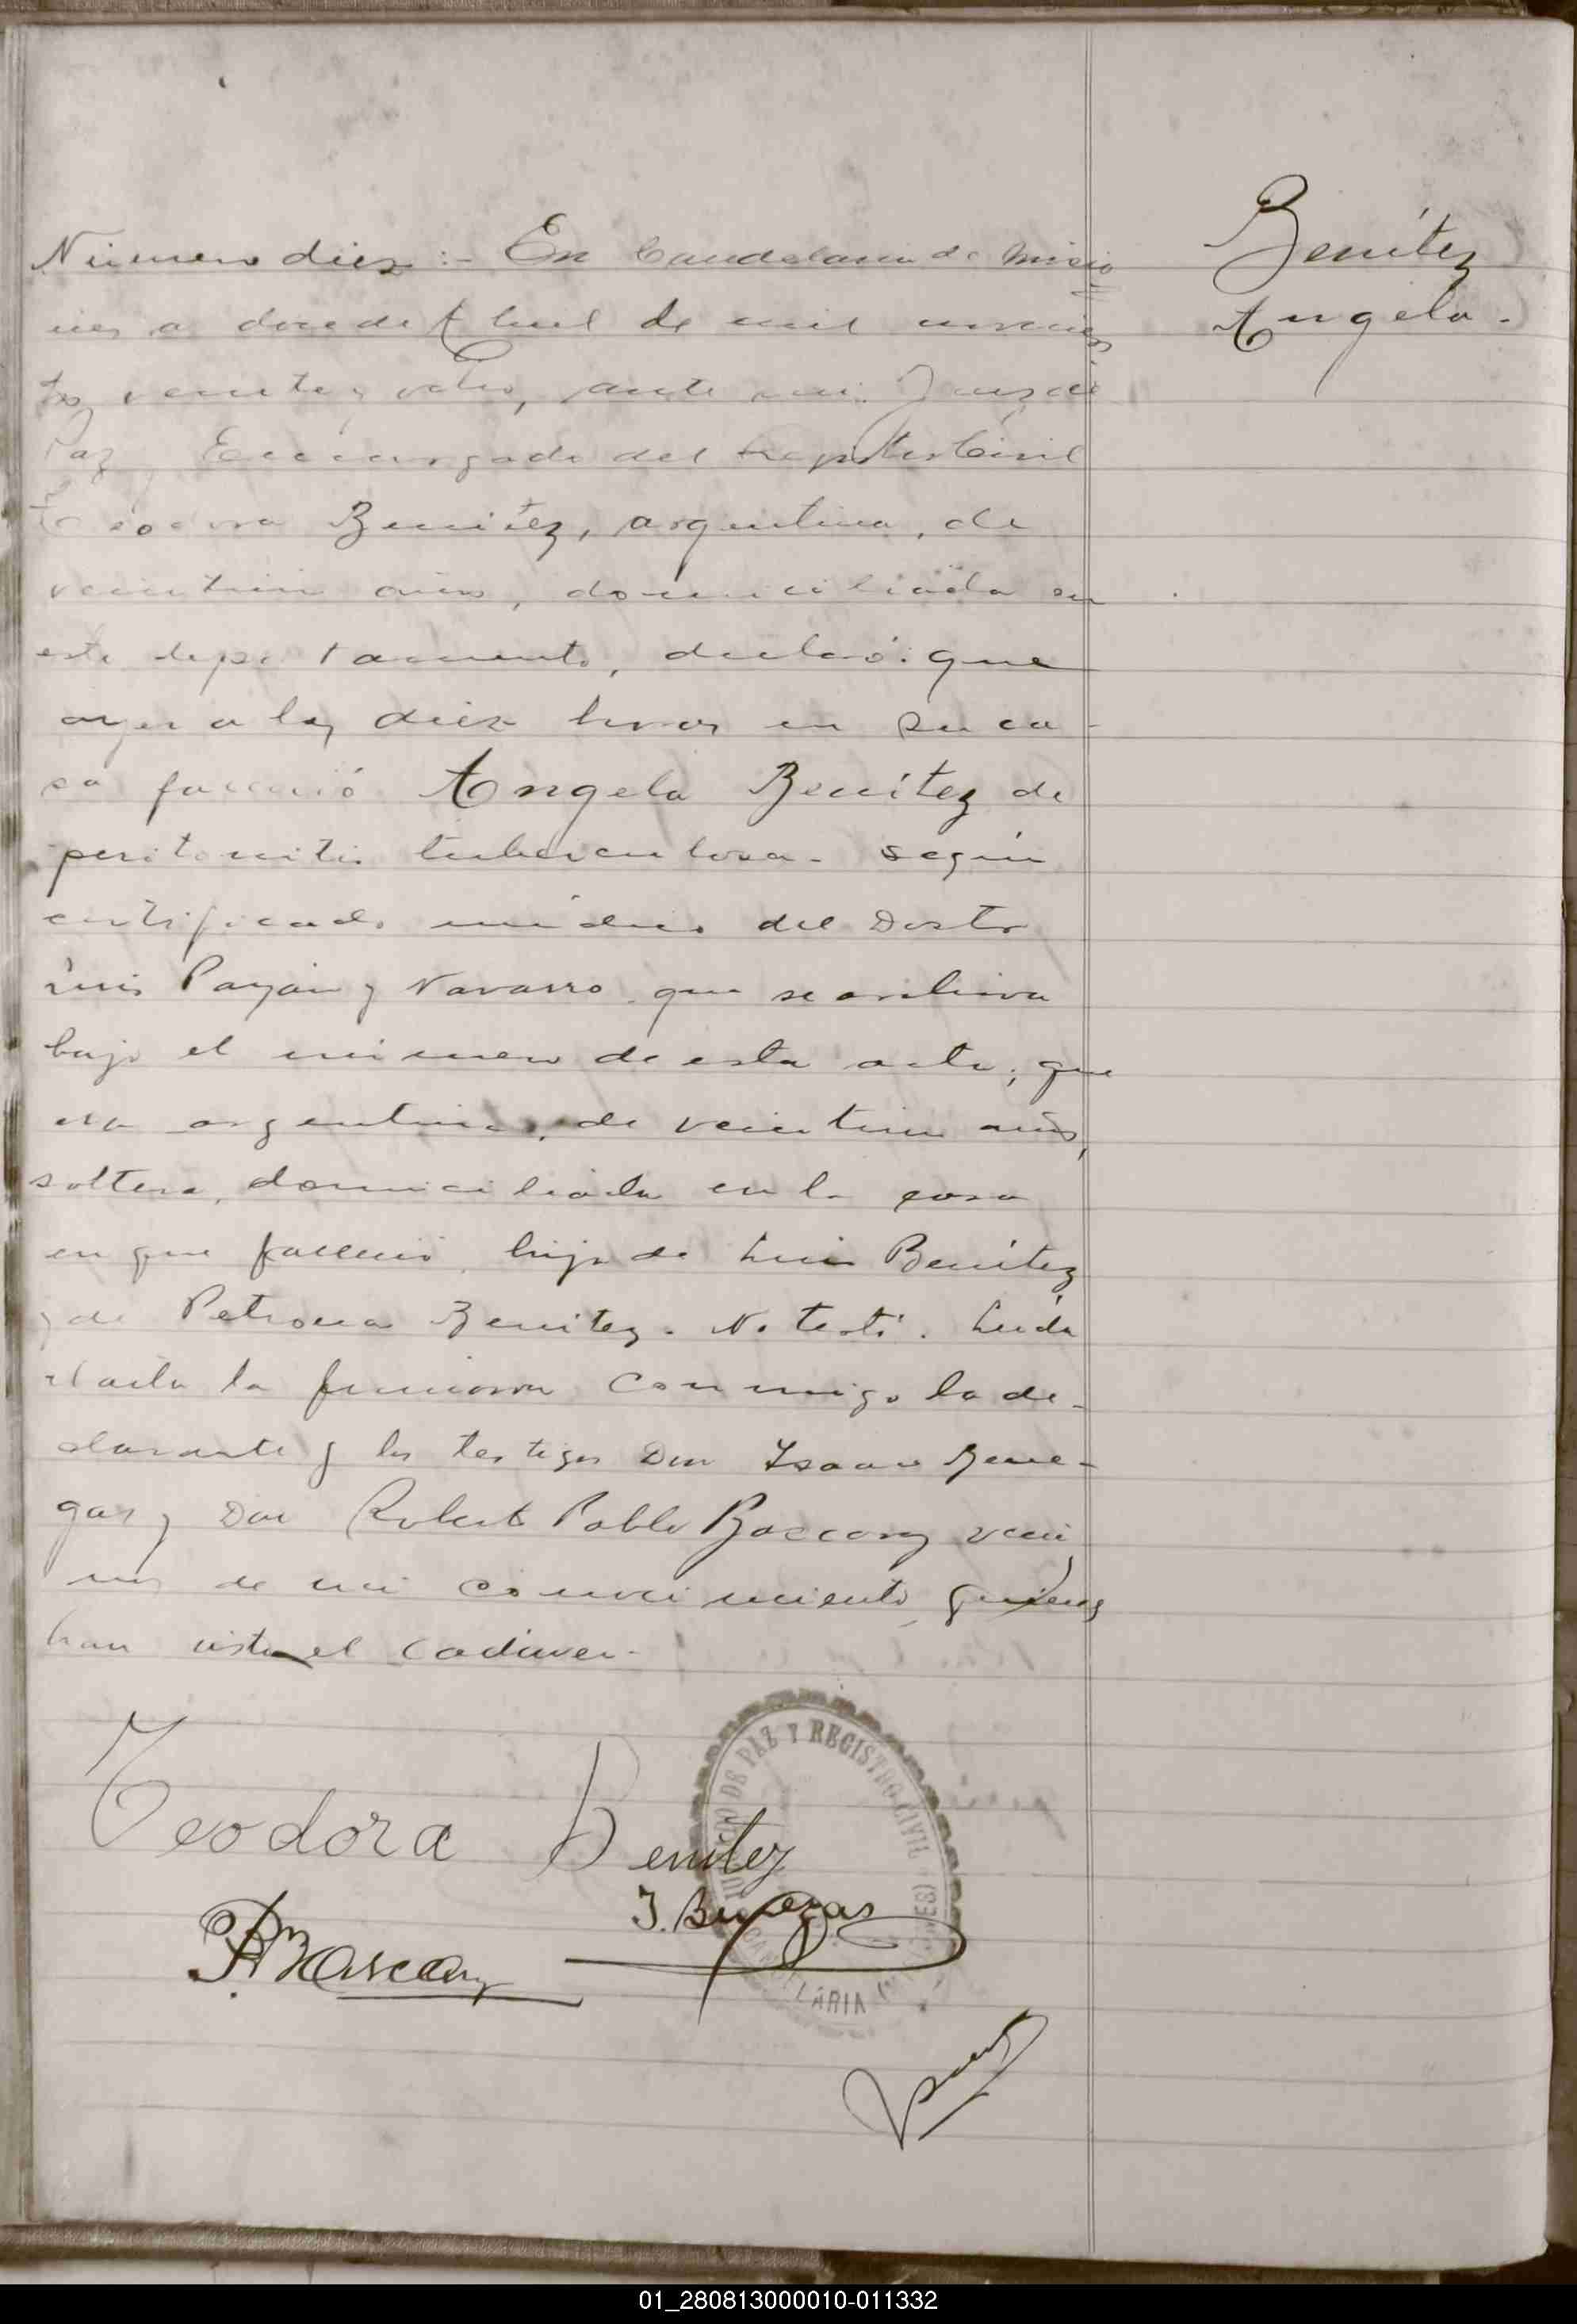 Número diez :- En Candelaria de Misio
nes a doce de Abril de mil novecien
tos veinte y ocho, ante mi: Juez de
Paz y Encargado del Registro Civil
Teodora Benítez, argentina, de
veintiun años, domiciliada en
este departamento, declaró: que
ayer a las diez horas en su ca-
sa falleció Angela Benítez de
peritonitis tuberculosa - según
certificado médico del Doctor
Luis Payán y Navarro que se archiva
bajo el número de esta acta; que
era argentina, de veintiun años,
soltera, domiciliada en la casa
en que falleció, hija de Luis Benítez
y de Petrona Benitez. No testó. Leída
el acta la firmaron conmigo la de-
clarante y los testigos Don Isaac Bene-
gas y Don Roberto Pablo Bascary veci
nos de mi conocimiento quienes
han visto el cadáver.
Benítez
Angela.
Teodora Benitez
J. Benegas
RPBascary
JUZGADO DE PAZ Y REGISTRO CIVIL
CANDELARIA (MISIONES)
01_280813000010-011332